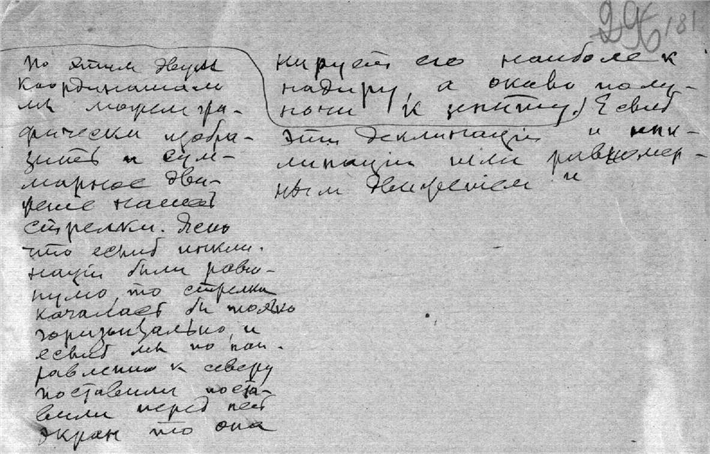 296
181
по этим двум
координатам
мы можем гра-
фически изобра-
зить и сум-
марное дви-
жение нашей
стрелки. Ясно
что еслиб инкли-
нации были равны
нулю, то стрелка
качалась бы только
горизонтально, и
еслиб мы по нап-
равлению к северу
поставили поста-
вили перед ней
экран то она
нирует его наиболе к
надиру, а около полу-
ночи к зениту.) Еслиб
эти деклинации и инк-
линации шли равномер-
ным движением и